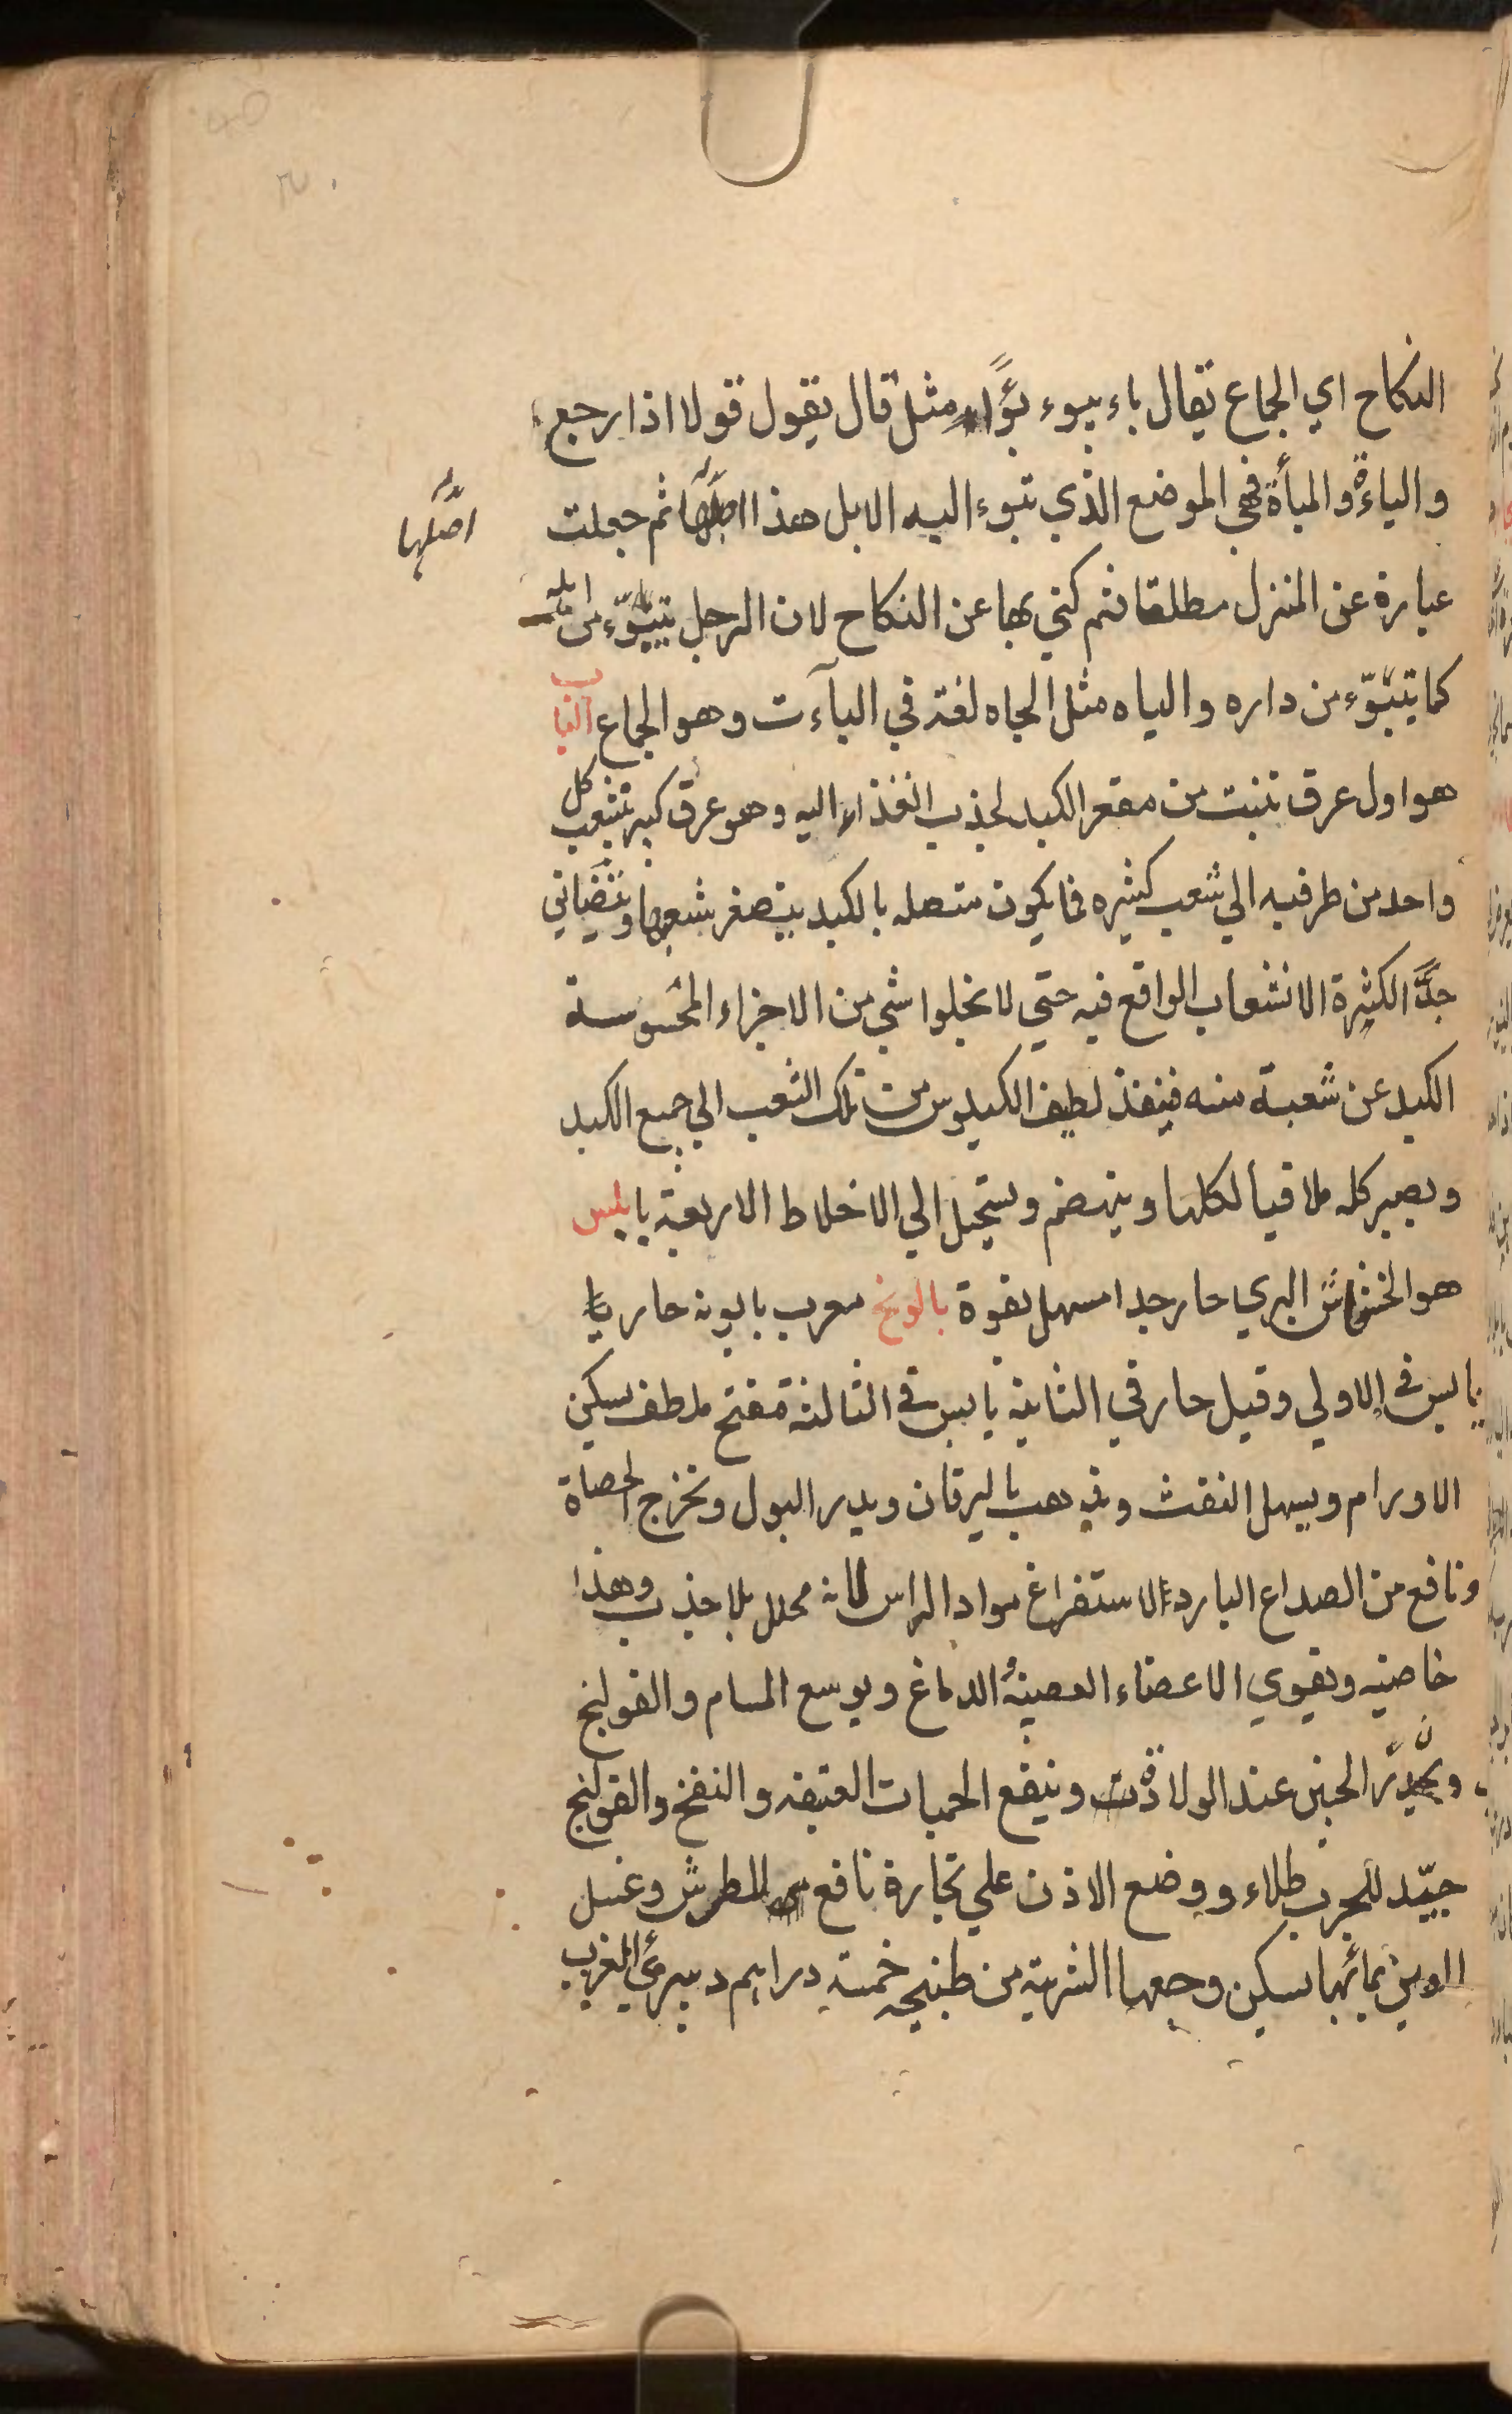 النكاح اي الجماع يقال باء يبوء بوءًا مثل قال يقول قولا اذا رجع
والباءة والمبأة فهي الموضع الذي تبوء اليه الابل هذا اصلها ثم جعلت
اصلها
عبارة عن المنزل مطلقا ثم كني بها عن النكاح لان الرجل يتبوّء من اهله
كما يتبوّء من داره والباه مثل الجاه لغة في الباءت وهو الجماع الباب
هو اول عرق تنبت من مقعر الكبد لجذب الغذاء اليه وهو عرق كبير تنشعب كل
واحد من طرفيه الي شعب كثيره فما يكون متصله بالكبد يتصغر شعبها وتتضياني
جدًّا لكثرة الانشعاب الواقع فيه حتي لا نخلوا شي من الاجزاء المحسوسة
الكبد عن شعبة منه فينفذ لطيف الكيلوس من تلك الشعب الي جميع الكبد
ويصير كله ملاقيا لكلها وينهضم ويستحيل الي الاخلاط الاربعة بابلس
هو الخشخاش البري حار جدا مسهل بقوة بابونج معرب بابونه حار
يابس في الاولي وقيل حار في الثانية يابس في الثالثة مفتح ملطف يسكن
الاورام ويسهل النفث ويذهب باليرقان ويدر البول ونخرج الحصاة
ونافع من الصداع البارد الاستفراغ مواد الراس لانه محلل بلا جذب وهذا
خاصيته ويقوي الاعضاء العصبية الدماغ ويوسع المسام والقولنج
الجنين عند الولادة وينفع الحميات العتيقه والنفخ والقولنج
جيّد للجرب طلاء ووضع الاذن علي بخاره نافع للطرش وغسل
بمائها يسكن وجعها الشربة من طبيخه خمسة دراهم ويبرئ الغرب